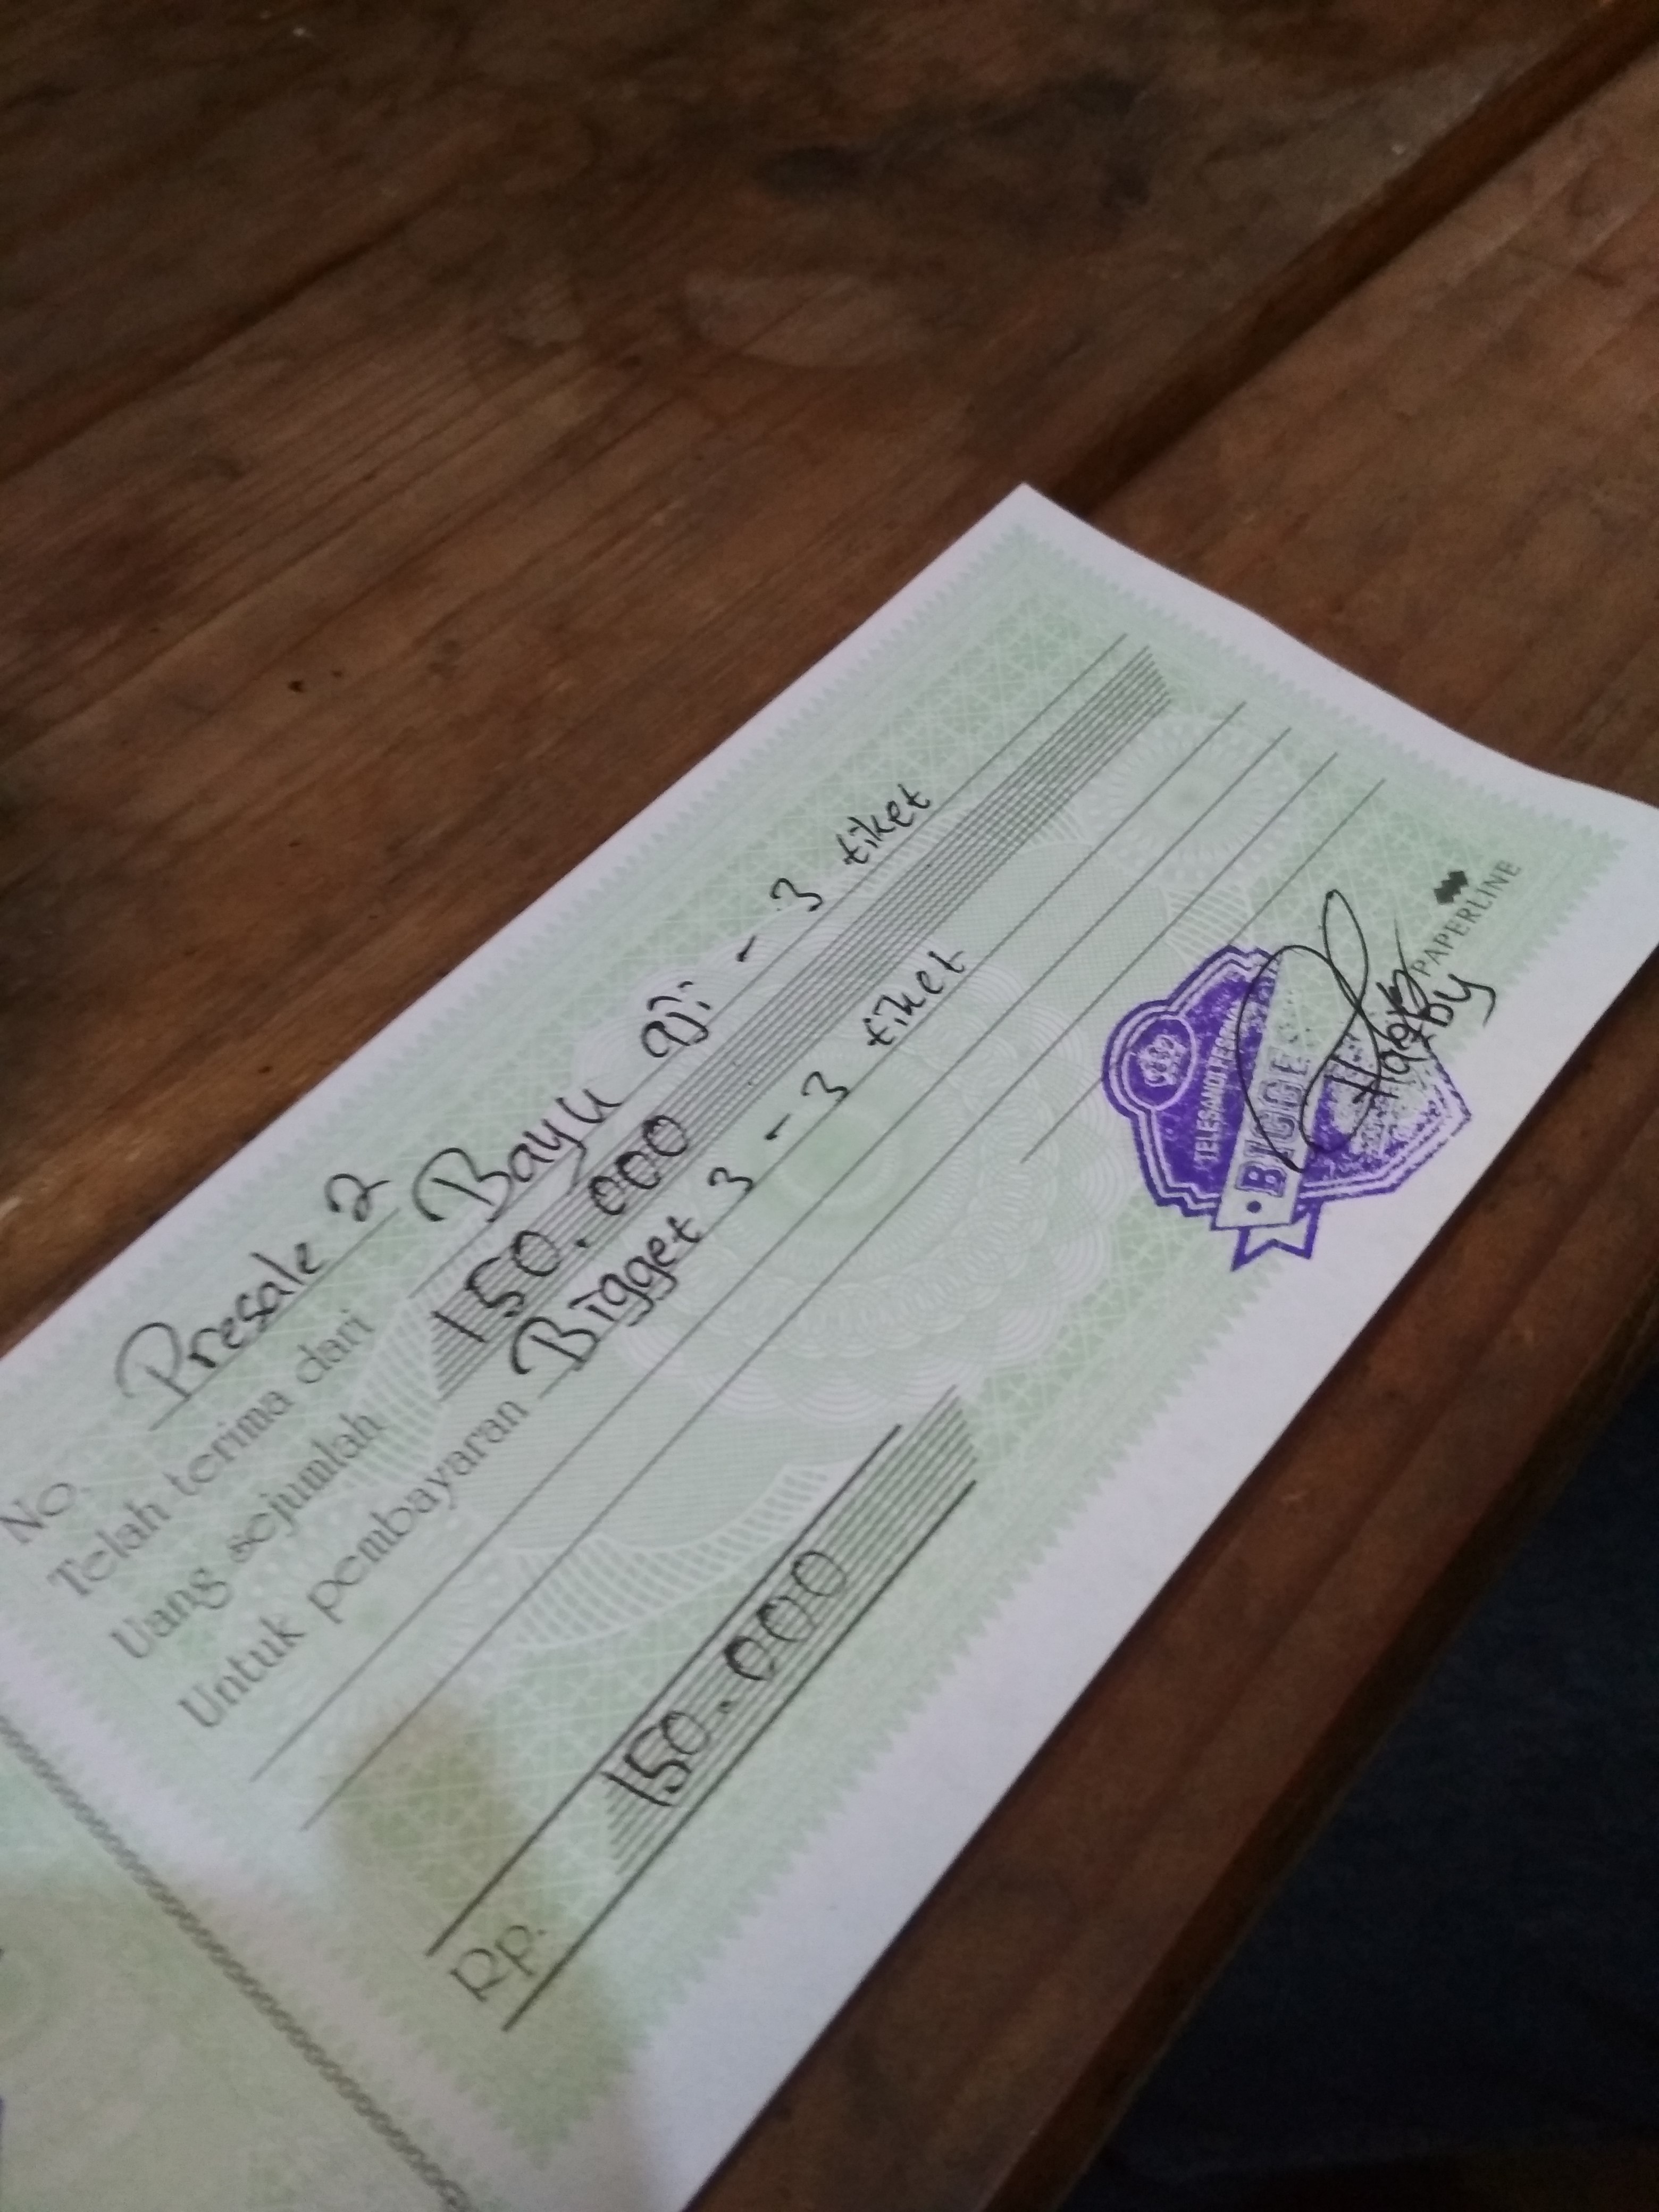 No. Presale 2
Telah terima dari Bayu aji - 3 tiket
Uang sejumlah 150.000
Untuk pembayaran Bigget 3 - 3 tiket
Rp. 150.000
TELESANDI
BIGGE
PAPERLINE